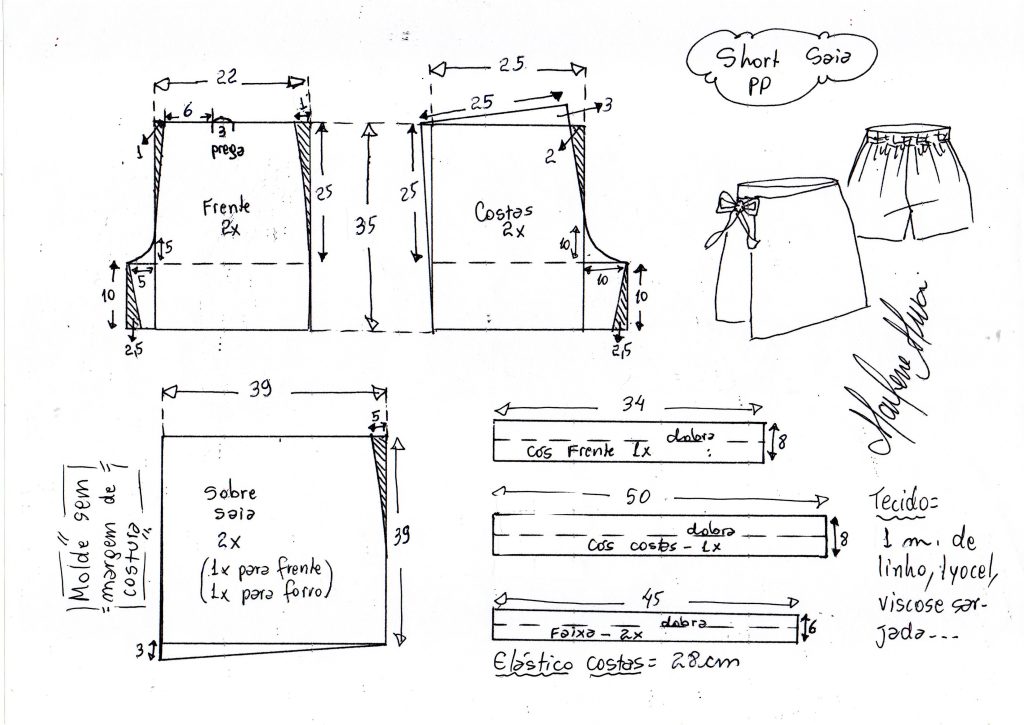 Short Saia
PP
22
6
3
prega
1
1
Frente
2x
25
5
5
10
2,5
35
25
25
3
2
25
Costas
2x
10
10
10
2,5
39
5
39
Sobre
saia
2x
(1x para frente)
(1x para forro)
3
Molde sem
margem de
costura
34
dobra
Cós Frente 1x
8
50
dobra
Cós costas - 1x
8
45
dobra
Faixa - 2x
6
Elástico costas = 28cm
Tecido=
1 m. de
linho, lyocel,
viscose sar-
jada---